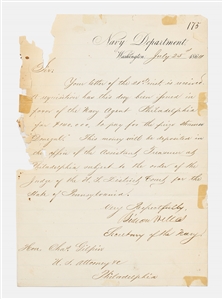 175
Navy Department,
Washington July 25th 1864
Sir:
Your letter of the 23d inst is received.
A requisition has this day been issued in
favor of the Navy Agent Philadelphia
for to pay for the prize
This money will be deposited in
the office of the Assistant Treasurer at
Philadelphia subject to the order of the
Judge of the U. S. District Court for the
State of Pennsylvania.
Very Respectfully,
Gideon Welles
Secretary of the Navy
Hon. Chas. Gilpin
U. S. Attorney &c
Philadelphia